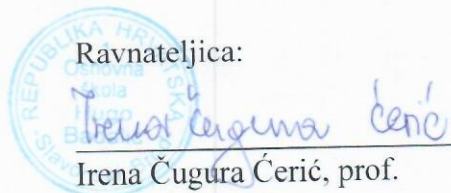 Ravnateljica:
REPUBLIKA HRVATSKA
Osnovna
škola
Hugo
Irena Čugura Ćerić
Irena Čugura Ćerić, prof.